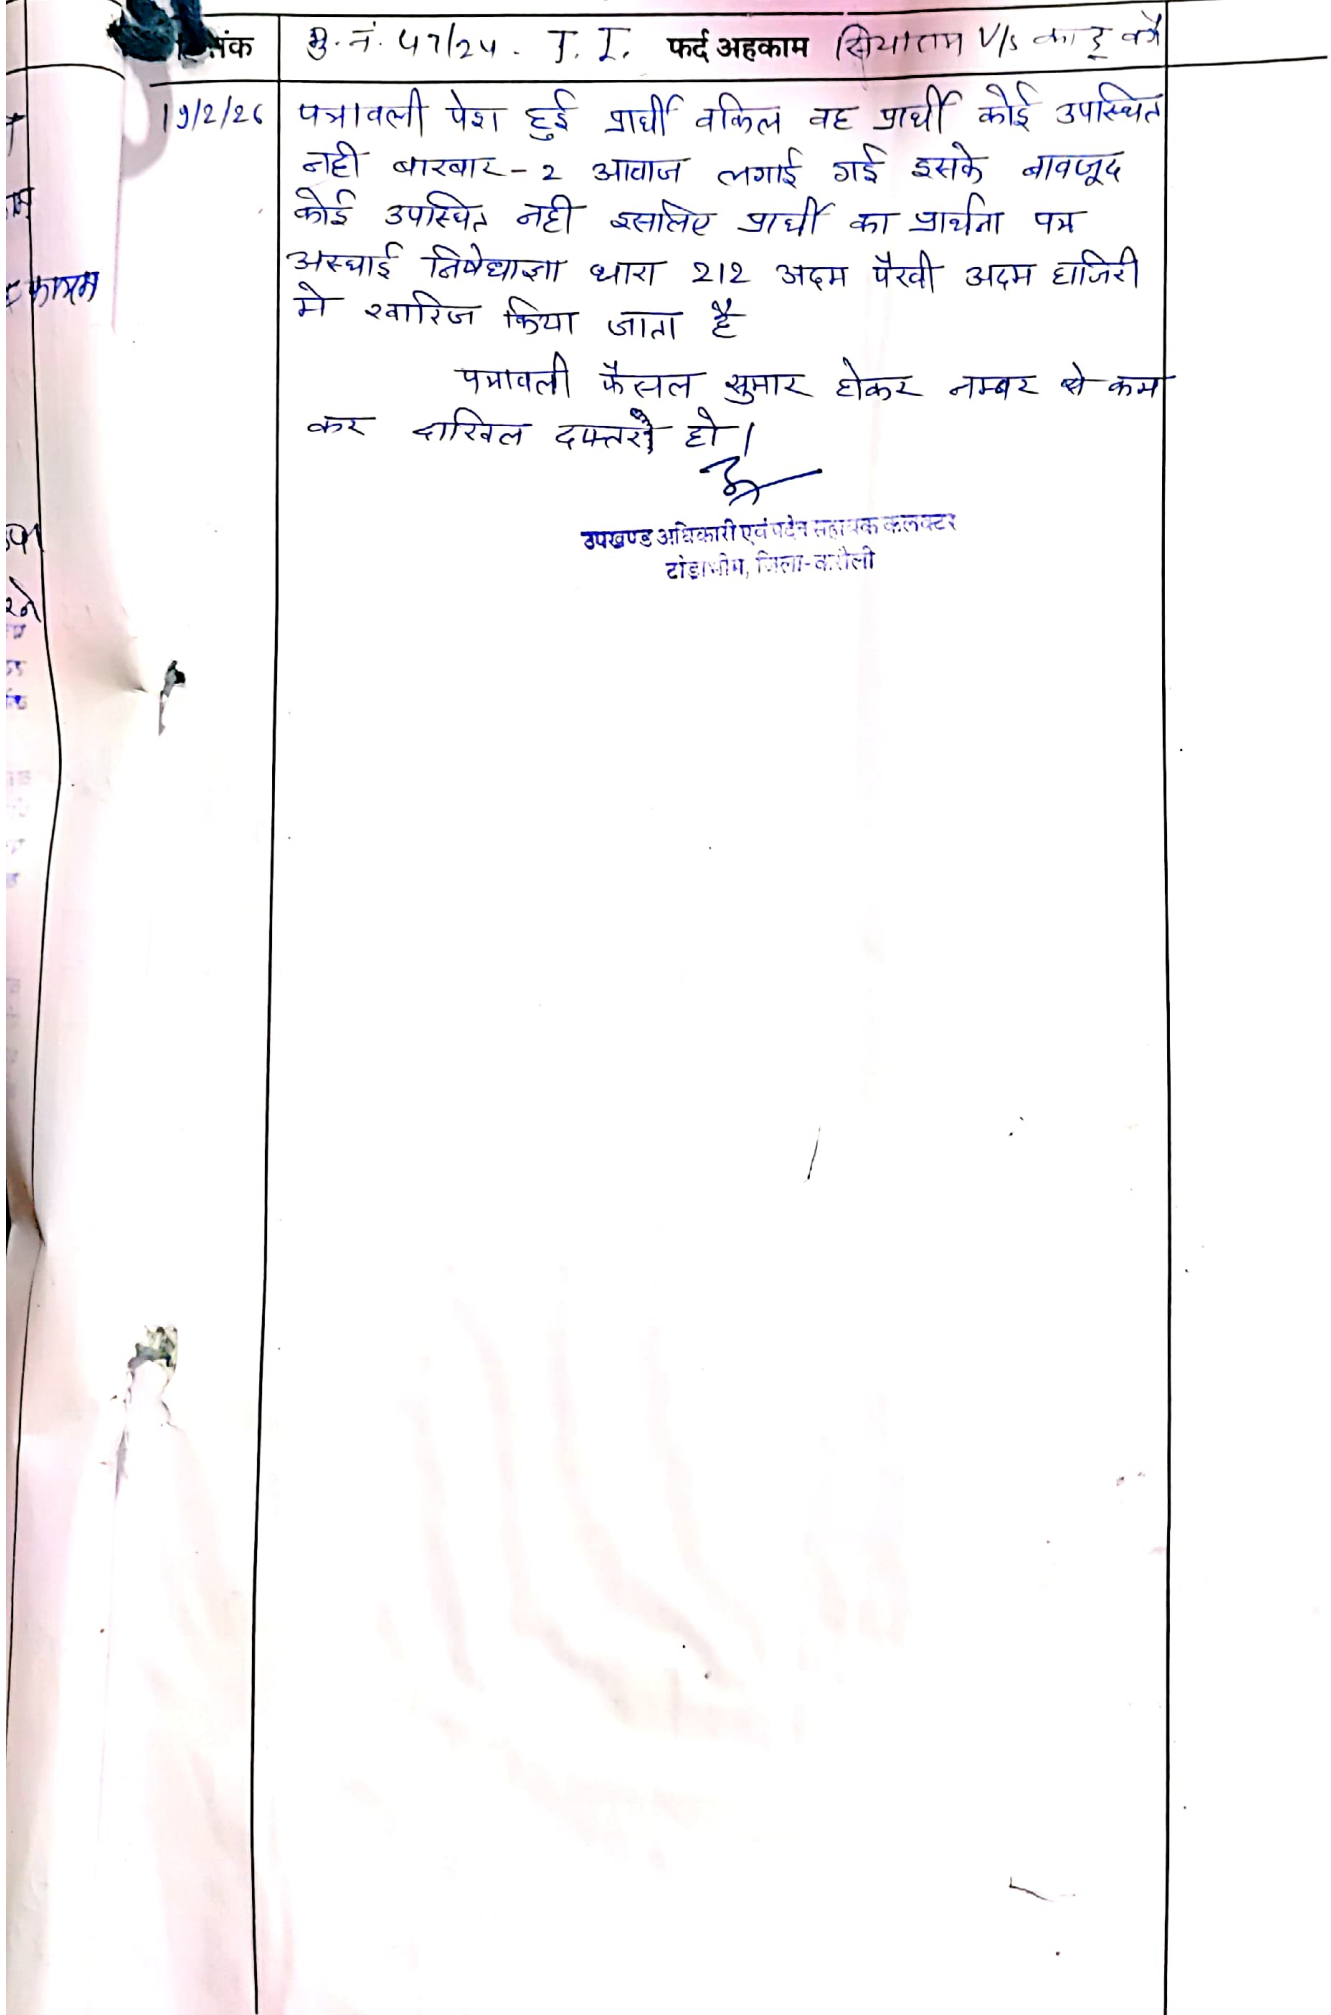 दिनांक मु. नं. 47/24. T. I. फर्द अहकाम सियाराम V/s काडू वगै
19/2/26 पत्रावली पेश हुई प्रार्थी वकिल वह प्रार्थी कोई उपस्थित
नही बारबार-2 आवाज लगाई गई इसके बावजूद
कोई उपस्थित नही इसलिए प्रार्थी का प्रार्थना पत्र
अस्थाई निषेधाज्ञा धारा 212 अदम पैरवी अदम हाजिरी
मे खारिज किया जाता है
पत्रावली फैसल सुमार होकर नम्बर से कम
कर दाखिल दफ्तर हो।
उपखण्ड अधिकारी एवं पदेन सहायक कलक्टर
टोडाभीम, जिला-करौली